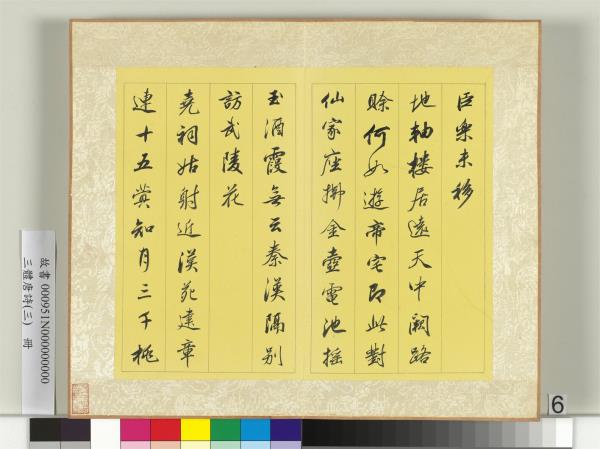 臣樂未移
地軸樓居遠天中闕路
賒何如遊帝宅即此對
仙家座拂金壺電池搖
玉酒霞無云秦漢隔別
訪武陵花
堯祠姑射近漢苑建章
連十五蓂知月三千桃
故書 000951N000000000
三體唐詩(三) 冊
6